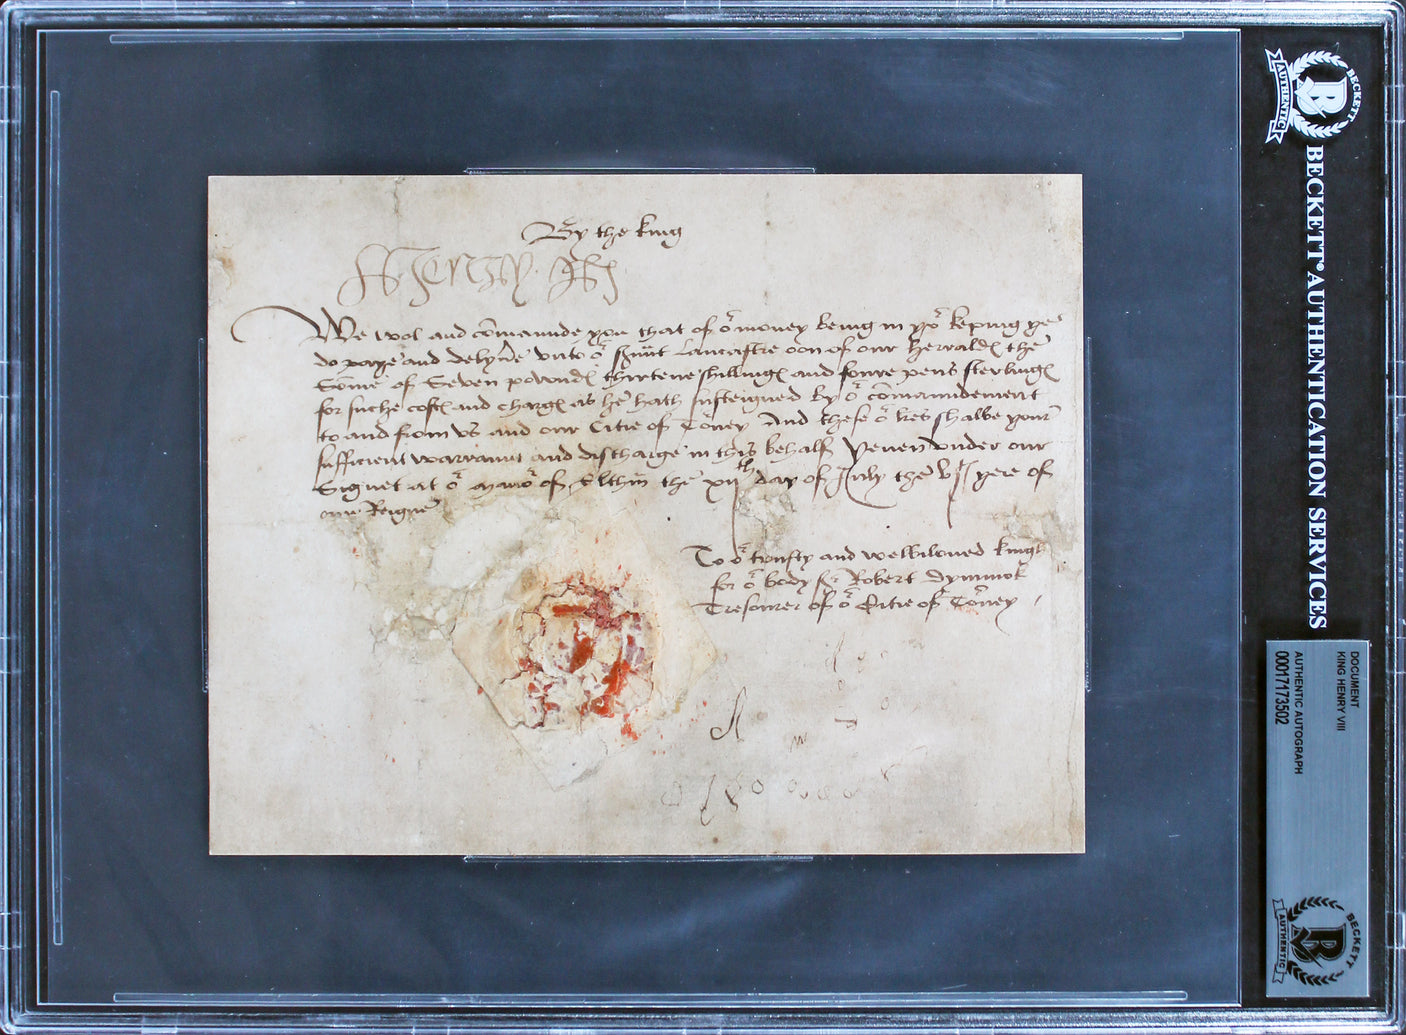 By the king
Henry R
We wol and com̄aunde you that of oʳ money being in yoʳ keping ye
do paye and delyv̄e vnto oʳ ſ̄uant Lancaſtre oon of our herraldꝭ the
Som̄e of Seven powndꝭ thirtene ſhillingꝭ and foure pens ſterlingꝭ
for ſuche coſtꝭ and chargꝭ as he hath ſuſteigned by oʳ com̄aundement
to and from vs and our Citie of Torney And theſe oʳ l̄res ſhalbe your
ſufficient warraunt and diſcharge in this behalf Yeven vnder our
Signet at oʳ manoʳ of Elthm̄ the xijᵗʰ day of July the vjᵗ yere of
our Reigne
To oʳ truſty and welbiloued knight
for oʳ body Sʳ Robert Dymmok
Treſourer of oʳ Citie of Torney
BECKETT
AUTHENTIC
BECKETT AUTHENTICATION SERVICES
DOCUMENT
KING HENRY VIII
AUTHENTIC AUTOGRAPH
00017173502
BECKETT
AUTHENTIC